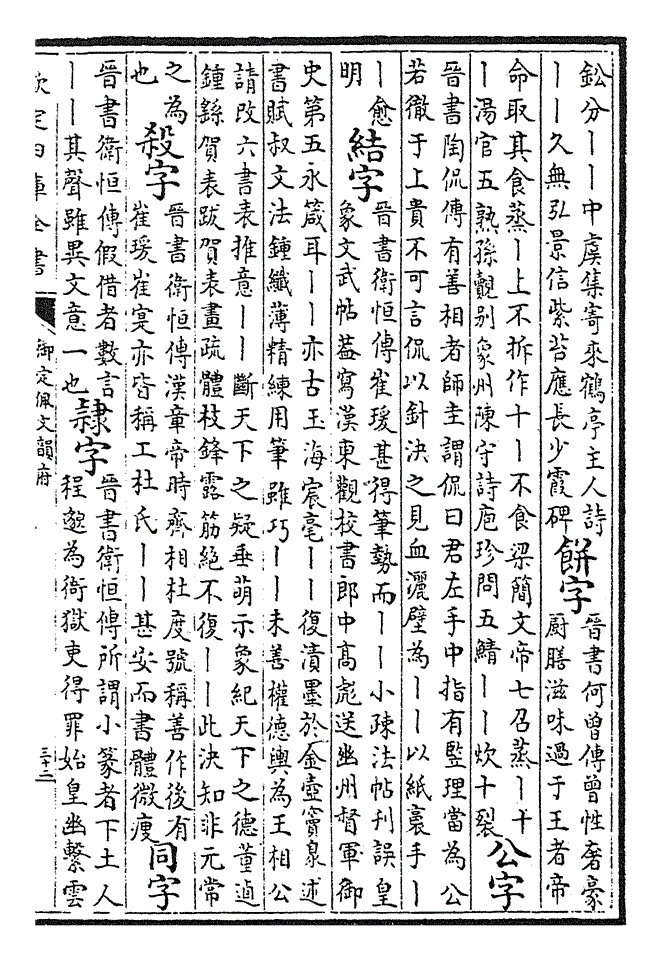 鈆分丨丨中虞集寄來鶴亭主人詩
丨丨久無弘景信紫苔應長少霞碑
餅字
晉書何曾傳曾性奢豪
厨膳滋味過于王者帝
命取其食蒸丨上不拆作十丨不食梁簡文帝七召蒸丨十
丨湯官五熟孫覿别象州陳守詩庖珍問五鯖丨丨炊十裂
公字
晉書陶侃傳有善相者師圭謂侃曰君左手中指有監理當為公
若徹于上貴不可言侃以針決之見血灑壁為丨丨以紙裹手丨
丨愈
明
結字
晉書衛恒傳崔瑗甚得筆勢而丨丨小疎法帖刊誤皇
象文武帖葢寫漢東觀校書郎中髙彪送幽州督軍御
史第五永箴耳丨丨亦古玉海宸毫丨丨復漬墨於金壺竇臮述
書賦叔文法鍾纎薄精練用筆雖巧丨丨未善權德輿為王相公
請改六書表推意丨丨斷天下之疑垂萌示象紀天下之德董逌
鍾繇賀表跋賀表畫疏體枝鋒露筋絶不復丨丨此決知非元常
之為
也
殺字
晉書衛恒傳漢章帝時齊相杜度號稱善作後有
崔瑗崔寔亦皆稱工杜氏丨丨甚安而書體微瘦
同字
晉書衛恒傳假借者數言
丨丨其聲雖異文意一也
隷字
晉書衛恒傳所謂小篆者下土人
程邈為衙獄吏得罪始皇幽繫雲
欽定四庫全書
御定佩文韻府
三十二